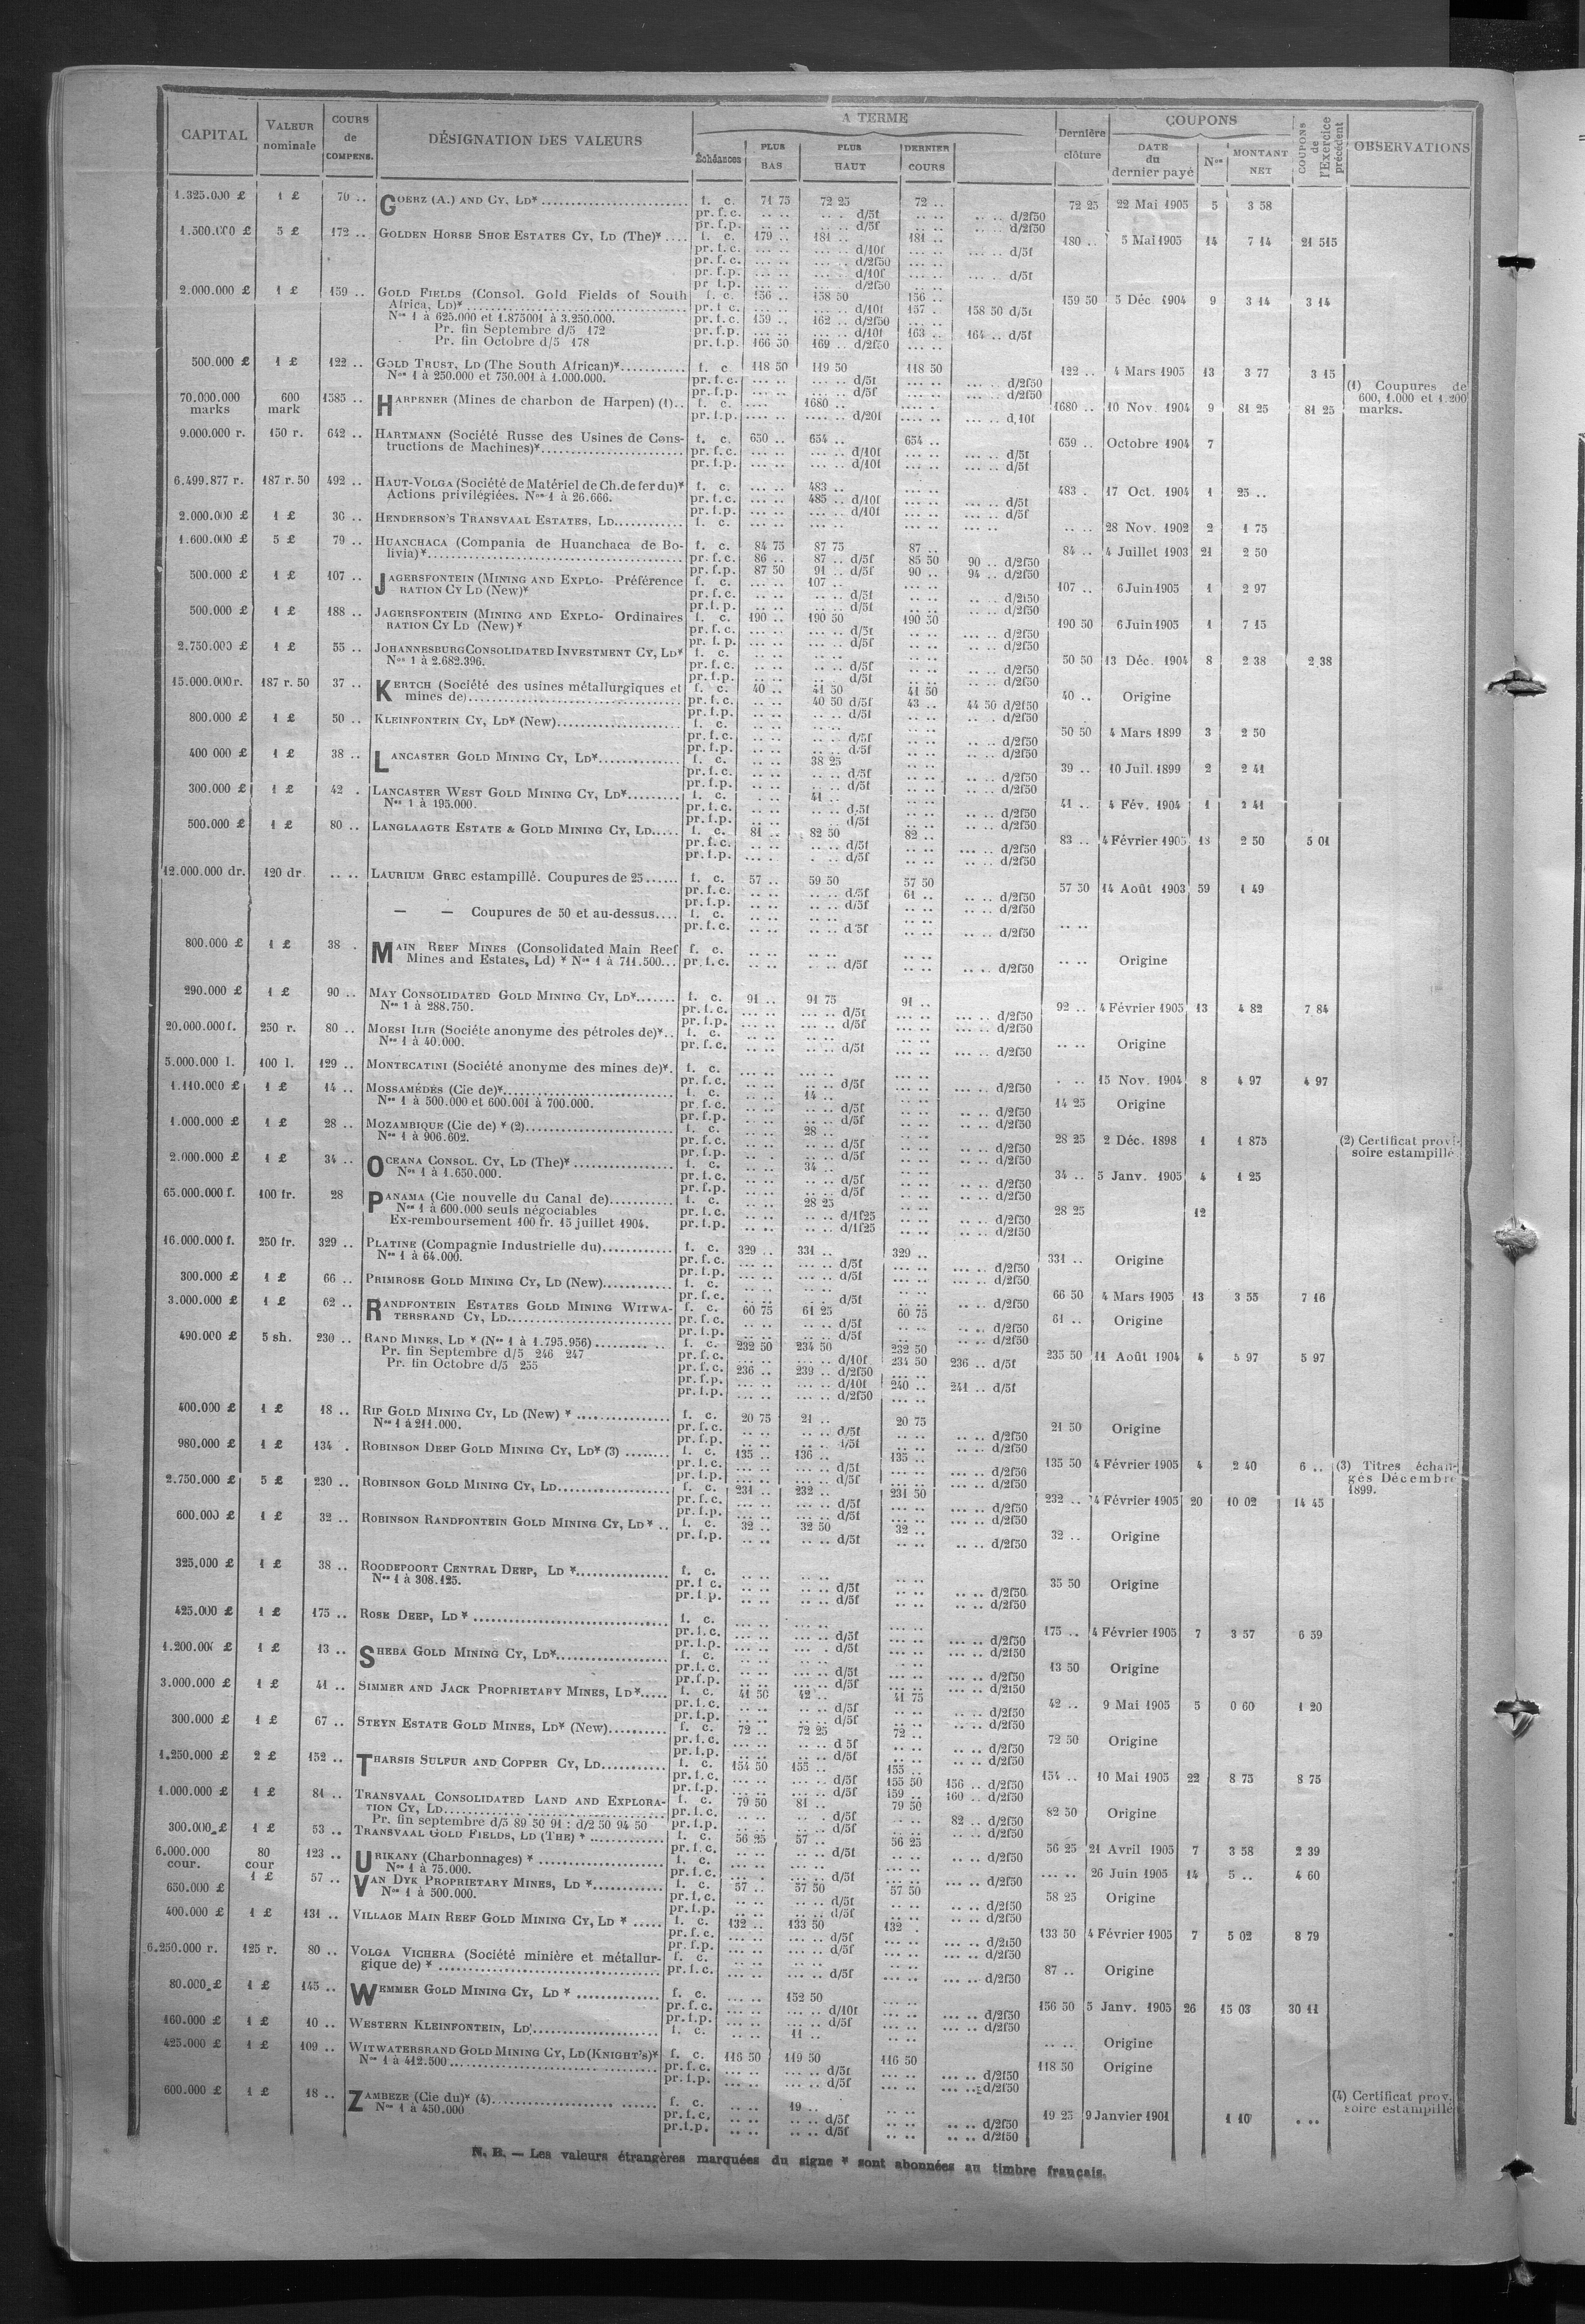 CAPITAL | VALEUR nominale | COURS de COMPENS. | DÉSIGNATION DES VALEURS | A TERME | Dernière clôture | COUPONS | COUPONS de l'Exercice précédent | OBSERVATIONS
Échéances | PLUS BAS | PLUS HAUT | DERNIER COURS | DATE du dernier payé | Nos | MONTANT NET
1.325.000 £ 1 £ 70 .. GOERZ (A.) AND CY, LD* f. c. 71 75 72 25 72 .. 72 25 22 Mai 1905 5 3 58
pr. f.c. .. .. .. . d/5f .. .. .. .. d/2f50
pr. f.p. .. .. .. . d/5f .. .. .. .. d/2f50
1.500.000 £ 5 £ 172 .. GOLDEN HORSE SHOE ESTATES CY, LD (The)* f. c. 179 .. 181 .. 181 .. 180 .. 5 Mai 1905 14 7 14 21 515
pr. f.c. ... .. ... .. d/10f ... .. ... .. d/5f
pr. f.c. ... .. ... .. d/2f50 ... ..
pr. f.p. ... .. ... .. d/10f ... .. ... .. d/5f
pr. f.p. ... .. ... .. d/2f50 ... ..
2.000.000 £ 1 £ 159 .. GOLD FIELDS (Consol. Gold Fields of South f. c. 156 .. 158 50 156 .. 159 50 5 Déc. 1904 9 3 14 3 14
Africa, LD)* pr. f.c. ... .. ... .. d/10f 157 . 158 50 d/5f
Nos 1 à 625.000 et 1.875001 à 3.250.000. pr. f.c. 159 .. 162 .. d/2f50 ... ..
Pr. fin Septembre d/5 172 pr. f.p. ... .. ... .. d/10f 163 .. 164 .. d/5f
Pr. fin Octobre d/5 178 pr. f.p. 166 50 169 .. d/2f50 ... ..
500.000 £ 1 £ 122 .. GOLD TRUST, LD (The South African)* f. c. 118 50 119 50 118 50 122 .. 4 Mars 1905 13 3 77 3 15
Nos 1 à 250.000 et 750.001 à 1.000.000. pr. f.c. ... .. ... .. d/5f ... .. d/2f50
pr. f.p. ... .. ... .. d/5f ... .. d/2f50
(1) Coupures de
600, 1.000 et 1.200
marks.
70.000.000 marks 600 mark 1585 .. HARPENER (Mines de charbon de Harpen) (1).. f. c. .... 1680 .. .... 1680 .. 10 Nov. 1904 9 81 25 81 25
pr. f.p. .... .. .... .. d/20f .... .. ... .. d/10f
9.000.000 r. 150 r. 642 .. HARTMANN (Société Russe des Usines de Cons- f. c. 650 .. 654 .. 654 .. 659 .. Octobre 1904 7
tructions de Machines)* pr. f.c. ... .. ... .. d/10f ... .. ... .. d/5f
pr. f.p. ... .. ... .. d/10f ... .. ... .. d/5f
6.499.877 r. 187 r. 50 492 .. HAUT-VOLGA (Société de Matériel de Ch. de fer du)* f. c. ... .. 483 .. ... .. 483 . 17 Oct. 1904 1 25 ..
Actions privilégiées. Nos 1 à 26.666. pr. f.c. ... .. 485 .. d/10f ... .. ... .. d/5f
pr. f.p. ... .. ... .. d/10f ... .. ... .. d/5f
2.000.000 £ 1 £ 36 .. HENDERSON'S TRANSVAAL ESTATES, LD f. c. ... .. ... .. ... .. 28 Nov. 1902 2 1 75
1.600.000 £ 5 £ 79 .. HUANCHACA (Compania de Huanchaca de Bo- f. c. 84 75 87 75 87 .. 84 .. 4 Juillet 1903 21 2 50
livia)* pr. f.c. 86 .. 87 .. d/5f 85 50 90 .. d/2f50
pr. f.p. 87 50 91 .. d/5f 90 .. 94 .. d/2f50
500.000 £ 1 £ 107 .. JAGERSFONTEIN (MINING AND EXPLO- Préférence f. c. ... .. 107 .. ... .. 107 .. 6 Juin 1905 1 2 97
RATION CY LD (New)* pr. f.c. .. .. .. .. d/5f .. .. .. .. d/2f50
pr. f.p. .. .. .. .. d/5f .. .. .. .. d/2f50
500.000 £ 1 £ 188 .. JAGERSFONTEIN (MINING AND EXPLO- Ordinaires f. c. 190 .. 190 50 190 50 190 50 6 Juin 1905 1 7 15
RATION CY LD (New)* pr. f.c. ... .. ... .. d/5f .. .. ... .. d/2f50
pr. f.p. ... .. ... .. d/5f .. .. ... .. d/2f50
2.750.000 £ 1 £ 55 .. JOHANNESBURG CONSOLIDATED INVESTMENT CY, LD* f. c. .. .. .. .. .. .. 50 50 13 Déc. 1904 8 2 38 2.38
Nos 1 à 2.682.396. pr. f.c. .. .. .. .. d/5f .. .. .. .. d/2f50
pr. f.p. .. .. .. .. d/5f .. .. .. .. d/2f50
15.000.000 r. 187 r. 50 37 .. KERTCH (Société des usines métallurgiques et f. c. 40 .. 41 50 41 50 40 .. Origine
mines de) pr. f.c. .. .. 40 50 d/5f 43 .. 44 50 d/2f50
pr. f.p. .. .. .. .. d/5f .. .. .. . d/2f50
800.000 £ 1 £ 50 .. KLEINFONTEIN CY, LD* (New) f. c. .. .. .. .. .. .. 50 50 4 Mars 1899 3 2 50
pr. f.c. .. .. .. .. d/5f .. .. .. .. d/2f50
pr. f.p. .. .. .. .. d/5f .. .. .. .. d/2f50
400 000 £ 1 £ 38 .. LANCASTER GOLD MINING CY, LD* f. c. .. .. 38 25 .. .. 39 .. 10 Juil. 1899 2 2 41
pr. f.c. .. .. .. .. d/5f .. .. .. .. d/2f50
pr. f.p. .. .. .. .. d/5f .. .. .. .. d/2f50
300.000 £ 1 £ 42 . LANCASTER WEST GOLD MINING CY, LD* f. c. .. .. 41 .. .. .. 41 .. 4 Fév. 1904 1 2 41
Nos 1 à 195.000. pr. f.c. .. .. .. .. d/5f .. .. .. .. d/2f50
pr. f.p. .. .. .. .. d/5f .. .. .. .. d/2f50
500.000 £ 1 £ 80 .. LANGLAAGTE ESTATE & GOLD MINING CY, LD f. c. 81 .. 82 50 82 .. 83 .. 4 Février 1905 18 2 50 5 01
pr. f.c. .. .. .. .. d/5f .. .. ... .. d/2f50
pr. f.p. ... . . .. d/5f .. .. .. .. d/2f50
12.000.000 dr. 120 dr. .. .. LAURIUM GREC estampillé. Coupures de 25 f. c. 57 .. 59 50 57 50 57 50 14 Août 1903 59 1 49
pr. f.c. .. .. .. .. d/5f 61 .. .. .. d/2f50
pr. f.p. .. .. .. .. d/5f .. .. .. .. d/2f50
— — Coupures de 50 et au-dessus f. c. .. .. .. .. .. .. .. ..
pr. f.c. .. .. .. .. d/5f .. .. .. .. d/2f50
800.000 £ 1 £ 38 . MAIN REEF MINES (Consolidated Main Reef f. c. .. .. .. .. .. .. .. .. Origine
Mines and Estates, Ld) * Nos 1 à 711.500... pr. f.c. .. .. . .. d/5f .. .. .. .. d/2f50
290.000 £ 1 £ 90 .. MAY CONSOLIDATED GOLD MINING CY, LD* f. c. 91 .. 91 75 91 .. 92 .. 4 Février 1905 13 4 82 7 84
Nos 1 à 288.750. pr. f.c. ... .. ... .. d/5f ... .. ... .. d/2f50
pr. f.p. ... .. ... .. d/5f ... .. ... .. d/2f50
20.000.000 f. 250 r. 80 .. MOESI ILIR (Société anonyme des pétroles de)*.. f. c. .. .. .. .. .. .. .. .. Origine
Nos 1 à 40.000. pr. f.c. .. .. .. .. d/5f .. .. ... .. d/2f50
5.000.000 l. 100 l. 129 .. MONTECATINI (Société anonyme des mines de)*. f. c. ... .. ... .. ... .. . .. 15 Nov. 1904 8 4 97 4 97
pr. f.c. ... .. .. .. d/5f ... .. ... .. d/2f50
1.110.000 £ 1 £ 14 .. MOSSAMÉDÈS (Cie de)* f. c. .. .. 14 .. .. .. 14 25 Origine
Nos 1 à 500.000 et 600.001 à 700.000. pr. f.c. .. .. .. .. d/5f .. .. .. .. d/2f50
pr. f.p. .. .. .. .. d/5f .. .. .. .. d/2f50
1.000.000 £ 1 £ 28 .. MOZAMBIQUE (Cie de) * (2) f. c. .. .. 28 .. .. .. 28 25 2 Déc. 1898 1 1 875 (2) Certificat provi-
Nos 1 à 906.602. pr. f.c. .. .. .. .. d/5f .. .. .. .. d/2f50 soire estampillé
pr. f.p. .. .. .. .. d/5f .. .. .. .. d/2f50
2.000.000 £ 1 £ 34 .. OCEANA CONSOL. CY, LD (The)* f. c. .. .. 34 .. .. .. 34 .. 5 Janv. 1905 4 1 25
Nos 1 à 1.650.000. pr. f.c. .. .. .. .. d/5f .. .. .. .. d/2f50
pr. f.p. .. .. .. .. d/5f .. .. .. .. d/2f50
65.000.000 f. 100 fr. 28 PANAMA (Cie nouvelle du Canal de) f. c. .. .. 28 25 .. .. 28 25 12
Nos 1 à 600.000 seuls négociables pr. f.c. .. .. .. .. d/1f25 .. .. .. .. d/2f50
Ex-remboursement 100 fr. 15 juillet 1904. pr. f.p. .. .. .. .. d/1f25 .. .. .. .. d/2f50
16.000.000 f. 250 fr. 329 .. PLATINE (Compagnie Industrielle du) f. c. 329 .. 331 .. 329 .. 331 .. Origine
Nos 1 à 64.000. pr. f.c. ... .. ... .. d/5f ... .. ... .. d/2f50
pr. f.p. ... .. ... .. d/5f ... .. ... .. d/2f50
300.000 £ 1 £ 66 .. PRIMROSE GOLD MINING CY, LD (New) f. c. .. .. .. .. .. .. 66 50 4 Mars 1905 13 3 55 7 16
pr. f.c. .. .. .. .. d/5f .. .. .. .. d/2f50
3.000.000 £ 1 £ 62 .. RANDFONTEIN ESTATES GOLD MINING WITWA- f. c. 60 75 61 25 60 75 61 .. Origine
TERSRAND CY, LD pr. f.c. .. .. .. .. d/5f .. .. .. .. d/2f50
pr. f.p. .. .. .. .. d/5f .. .. .. .. d/2f50
490.000 £ 5 sh. 230 .. RAND MINES, LD * (Nos 1 à 1.795.956) f. c. 232 50 234 50 232 50 235 50 11 Août 1904 4 5 97 5 97
Pr. fin Septembre d/5 246 247 pr. f.c. ... .. ... .. d/10f 234 50 236 .. d/5f
Pr. fin Octobre d/5 255 pr. f.c. 236 .. 239 .. d/2f50 ... ..
pr. f.p. ... .. ... .. d/10f 240 .. 241 .. d/5f
pr. f.p. ... .. ... .. d/2f50 ... ..
400.000 £ 1 £ 18 .. RIP GOLD MINING CY, LD (New) * f. c. 20 75 21 .. 20 75 21 50 Origine
Nos 1 à 211.000. pr. f.c. .. .. .. .. d/5f .. .. .. .. d/2f50
pr. f.p. .. .. .. .. d/5f .. .. .. .. d/2f50
980.000 £ 1 £ 134 . ROBINSON DEEP GOLD MINING CY, LD* (3) f. c. 135 .. 136 .. 135 .. 135 50 4 Février 1905 4 2 40 6 .. (3) Titres échan-
pr. f.c. ... .. ... .. d/5f ... .. ... .. d/2f50 gés Décembre
pr. f.p. ... .. ... .. d/5f ... .. ... .. d/2f50 1899.
2.750.000 £ 5 £ 230 .. ROBINSON GOLD MINING CY, LD f. c. 231 .. 232 .. 231 50 232 .. 4 Février 1905 20 10 02 14 45
pr. f.c. ... .. ... .. d/5f ... .. ... .. d/2f50
pr. f.p. ... .. ... .. d/5f ... .. ... .. d/2f50
600.000 £ 1 £ 32 .. ROBINSON RANDFONTEIN GOLD MINING CY, LD * .. f. c. 32 .. 32 50 32 .. 32 .. Origine
pr. f.p. .. .. .. .. d/5f .. .. .. .. d/2f50
325.000 £ 1 £ 38 .. ROODEPOORT CENTRAL DEEP, LD * f. c. .. .. .. .. .. .. 35 50 Origine
Nos 1 à 308.125. pr. f.c. .. .. .. .. d/5f .. .. .. .. d/2f50
pr. f.p. .. .. .. .. d/5f .. .. .. .. d/2f50
425.000 £ 1 £ 175 .. ROSE DEEP, LD * f. c. ... .. ... .. ... .. 175 .. 4 Février 1905 7 3 57 6 59
pr. f.c. ... .. ... .. d/5f ... .. ... .. d/2f50
pr. f.p. ... .. ... . d/5f ... .. ... .. d/2f50
1.200.000 £ 1 £ 13 .. SHEBA GOLD MINING CY, LD* f. c. .. .. .. .. .. .. 13 50 Origine
pr. f.c. .. .. ... .. d/5f ... .. ... .. d/2f50
pr. f.p. .. .. .. .. d/5f .. .. ... .. d/2f50
3.000.000 £ 1 £ 41 .. SIMMER AND JACK PROPRIETARY MINES, LD* f. c. 41 50 42 .. 41 75 42 .. 9 Mai 1905 5 0 60 1 20
pr. f.c. .. .. .. .. d/5f .. .. .. .. d/2f50
pr. f.p. .. .. .. .. d/5f .. .. .. .. d/2f50
300.000 £ 1 £ 67 .. STEYN ESTATE GOLD MINES, LD* (New) f. c. 72 .. 72 25 72 .. 72 50 Origine
pr. f.c. .. .. .. .. d 5f .. .. .. .. d/2f50
pr. f.p. .. .. .. .. d/5f .. .. .. .. d/2f50
1.250.000 £ 2 £ 152 .. THARSIS SULFUR AND COPPER CY, LD f. c. 154 50 155 .. 155 .. 154 .. 10 Mai 1905 22 8 75 8 75
pr. f.c. ... .. ... .. d/5f 155 50 156 .. d/2f50
pr. f.p. ... .. ... .. d/5f 159 .. 160 .. d/2f50
1.000.000 £ 1 £ 81 .. TRANSVAAL CONSOLIDATED LAND AND EXPLORA- f. c. 79 50 81 .. 79 50 82 50 Origine
TION CY, LD pr. f.c. .. .. .. .. d/5f .. .. 82 .. d/2f50
Pr. fin septembre d/5 89 50 91 : d/2 50 94 50 pr. f.p. .. .. .. .. d/5f .. .. .. .. d/2f50
300.000 £ 1 £ 53 .. TRANSVAAL GOLD FIELDS, LD (THE) * f. c. 56 25 57 .. 56 25 56 25 21 Avril 1905 7 3 58 2 39
pr. f.c. .. .. .. .. d/5f .. .. .. .. d/2f50
6.000.000 cour. 80 cour 123 .. URIKANY (Charbonnages) * f. c. ... .. ... .. ... .. ... .. 26 Juin 1905 14 5 .. 4 60
Nos 1 à 75.000. pr. f.c. ... .. ... .. d/5f ... .. ... .. d/2f50
650.000 £ 1 £ 57 .. VAN DYK PROPRIETARY MINES, LD * f. c. 57 .. 57 50 57 50 58 25 Origine
Nos 1 à 500.000. pr. f.c. .. .. .. .. d/5f .. .. .. .. d/2f50
pr. f.p. .. .. .. .. d/5f .. .. .. .. d/2f50
400.000 £ 1 £ 131 .. VILLAGE MAIN REEF GOLD MINING CY, LD * f. c. 132 .. 133 50 132 . 133 50 4 Février 1905 7 5 02 8 79
pr. f.c. ... .. ... .. d/5f ... .. ... .. d/2f50
pr. f.p. ... .. ... .. d/5f ... .. ... .. d/2f50
6.250.000 r. 125 r. 80 .. VOLGA VICHERA (Société minière et métallur- f. c. ... .. ... .. ... .. 87 .. Origine
gique de) * pr. f.c. ... .. ... .. d/5f ... .. ... .. d/2f50
80.000 £ 1 £ 145 .. WEMMER GOLD MINING CY, LD * f. c. ... .. 152 50 ... .. 156 50 5 Janv. 1905 26 15 03 30 11
pr. f.c. ... .. ... .. d/10f ... .. ... .. d/2f50
pr. f.p. ... .. ... .. d/5f ... .. ... .. d/2f50
160.000 £ 1 £ 10 .. WESTERN KLEINFONTEIN, LD f. c. .. .. 11 .. .. .. .. .. Origine
425.000 £ 1 £ 109 .. WITWATERSRAND GOLD MINING CY, LD (KNIGHT'S)* f. c. 116 50 119 50 116 50 118 50 Origine
Nos 1 à 412.500 pr. f.c. ... .. ... .. d/5f ... .. ... .. d/2f50
pr. f.p. ... .. ... .. d/5f ... .. ... .. d/2f50
600.000 £ 1 £ 18 .. ZAMBEZE (Cie du)* (4) f. c. .. .. 19 .. .. .. 19 25 9 Janvier 1901 1 10 . .. (4) Certificat prov.
Nos 1 à 450.000 pr. f.c. .. .. .. .. d/5f .. .. .. .. d/2f50 soire estampillé
pr. f.p. .. .. .. .. d/5f .. .. .. .. d/2f50
N. B. — Les valeurs étrangères marquées du signe * sont abonnées au timbre français.